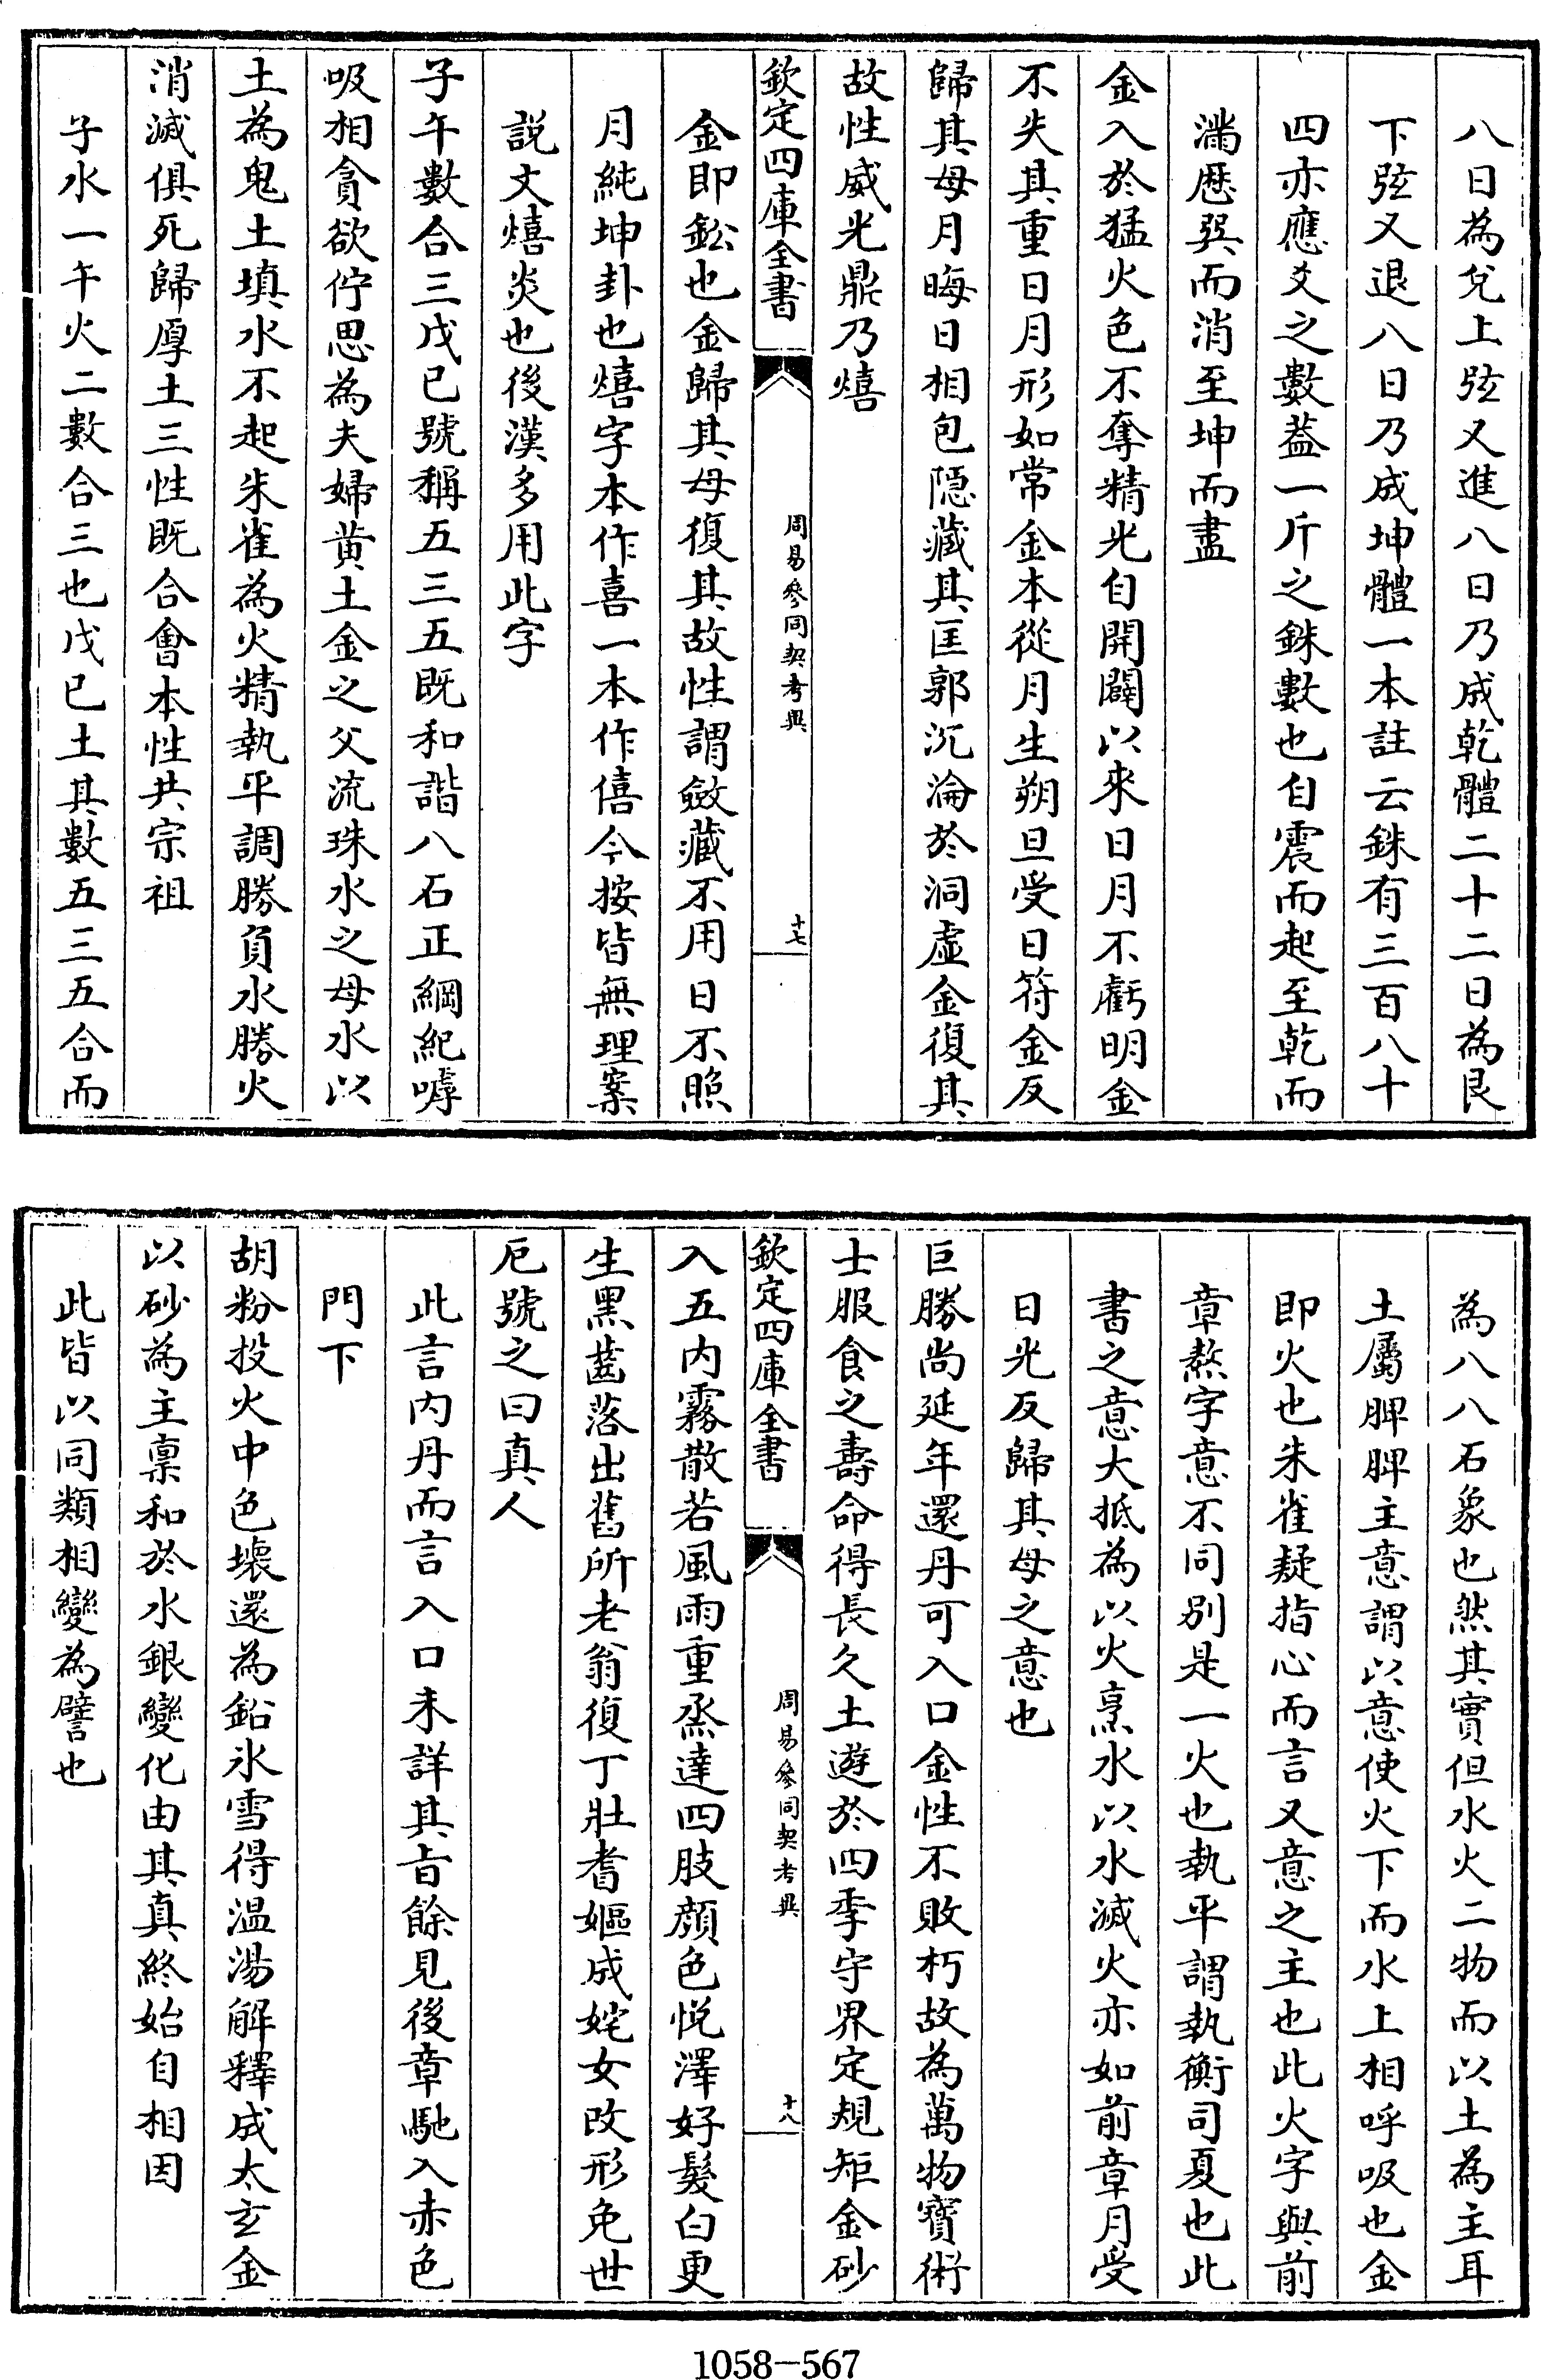 八日為兌上弦又進八日乃成乾體二十二日為艮
下弦又退八日乃成坤體一本註云銖有三百八十
四亦應爻之數蓋一斤之銖數也自震而起至乾而
滿歴巽而消至坤而盡
金入於猛火色不奪精光自開闢以來日月不虧明金
不失其重日月形如常金本從月生朔旦受日符金反
歸其母月晦日相包隠藏其匡郭沉淪於洞虛金復其
故性威光鼎乃熺
欽定四庫全書
周易參同契考異
十七
金即鈆也金歸其母復其故性謂斂藏不用日不照
月純坤卦也熺字本作喜一本作僖今按皆無理案
説文熺炎也後漢多用此字
子午數合三戊已號稱五三五既和諧八石正綱紀嘑
吸相貪欲佇思為夫婦黄土金之父流珠水之母水以
土為鬼土填水不起朱雀為火精執平調勝負水勝火
消滅俱死歸厚土三性既合會本性共宗祖
子水一午火二數合三也戊已土其數五三五合而
為八八石象也然其實但水火二物而以土為主耳
土屬脾脾主意謂以意使火下而水上相呼吸也金
即火也朱雀疑指心而言又意之主也此火字與前
章熬字意不同別是一火也執平謂執衡司夏也此
書之意大抵為以火烹水以水滅火亦如前章月受
日光反歸其母之意也
巨勝尚延年還丹可入口金性不敗朽故為萬物寳術
士服食之壽命得長久土遊於四季守界定規矩金砂
欽定四庫全書
周易參同契考異
十八
入五内霧散若風雨重烝達四肢顔色悦澤好髮白更
生黑齒落出舊所老翁復丁壯耆嫗成姹女改形免世
厄號之曰真人
此言内丹而言入口未詳其旨餘見後章馳入赤色
門下
胡粉投火中色壊還為鉛氷雪得温湯解釋成太玄金
以砂為主禀和於水銀變化由其真終始自相因
此皆以同類相變為譬也
1058-567